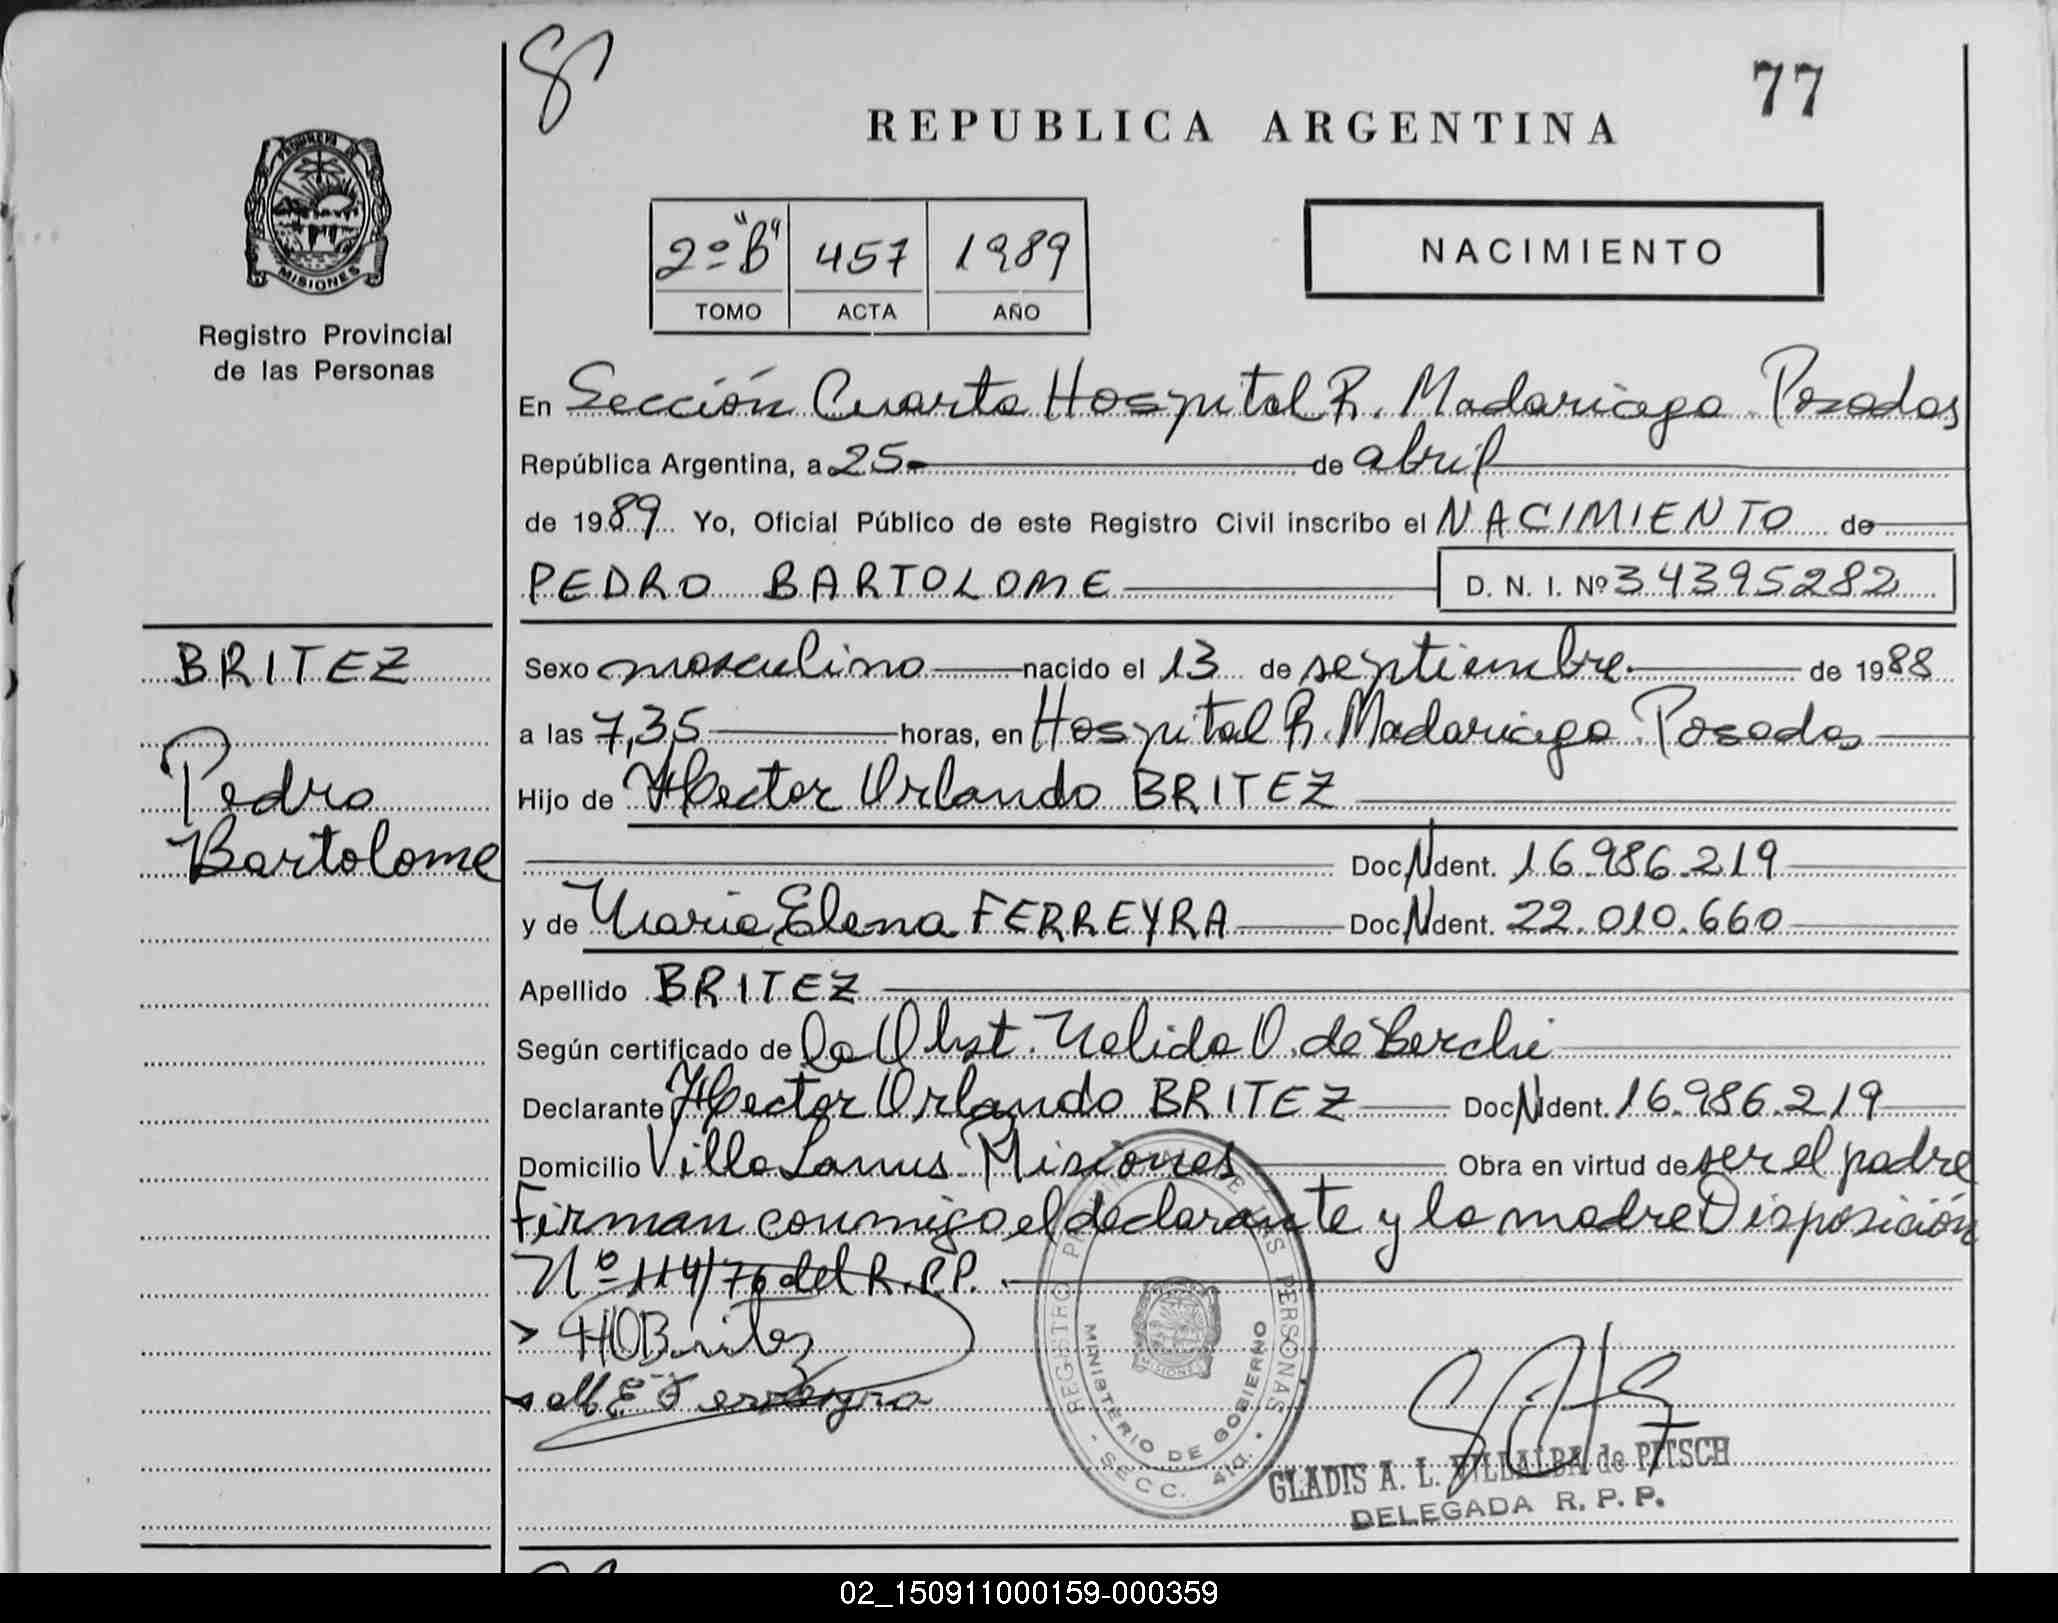 77
REPUBLICA ARGENTINA
PROVINCIA DE
MISIONES
Registro Provincial
de las Personas
2º "B" 457 1989
TOMO ACTA AÑO
NACIMIENTO
En Sección Cuarta Hospital R. Madariaga Posadas
República Argentina, a 25 de abril
de 1989 Yo, Oficial Público de este Registro Civil inscribo el NACIMIENTO de
PEDRO BARTOLOME D. N. I. Nº 34395282
BRITEZ
Pedro
Bartolome
Sexo masculino nacido el 13 de septiembre de 1988
a las 7,35 horas, en Hospital R. Madariaga Posadas
Hijo de Hector Orlando BRITEZ
Doc. Ident. 16.986.219
y de Maria Elena FERREYRA Doc. Ident. 22.010.660
Apellido BRITEZ
Según certificado de la Obst. Nelida O. de Berchi
Declarante Hector Orlando BRITEZ Doc. Ident. 16.986.219
Domicilio Villa Lanus Misiones Obra en virtud de ser el padre
Firman conmigo el declarante y la madre Disposición
Nº 114/76 del R.P.P.
HOBritez
M E Ferreyra
REGISTRO PROVINCIAL DE LAS PERSONAS
MINISTERIO DE GOBIERNO
SECC. 4ta.
MISIONES
GLADIS A. L. VILLALBA de PITSCH
DELEGADA R. P. P.
02_150911000159-000359